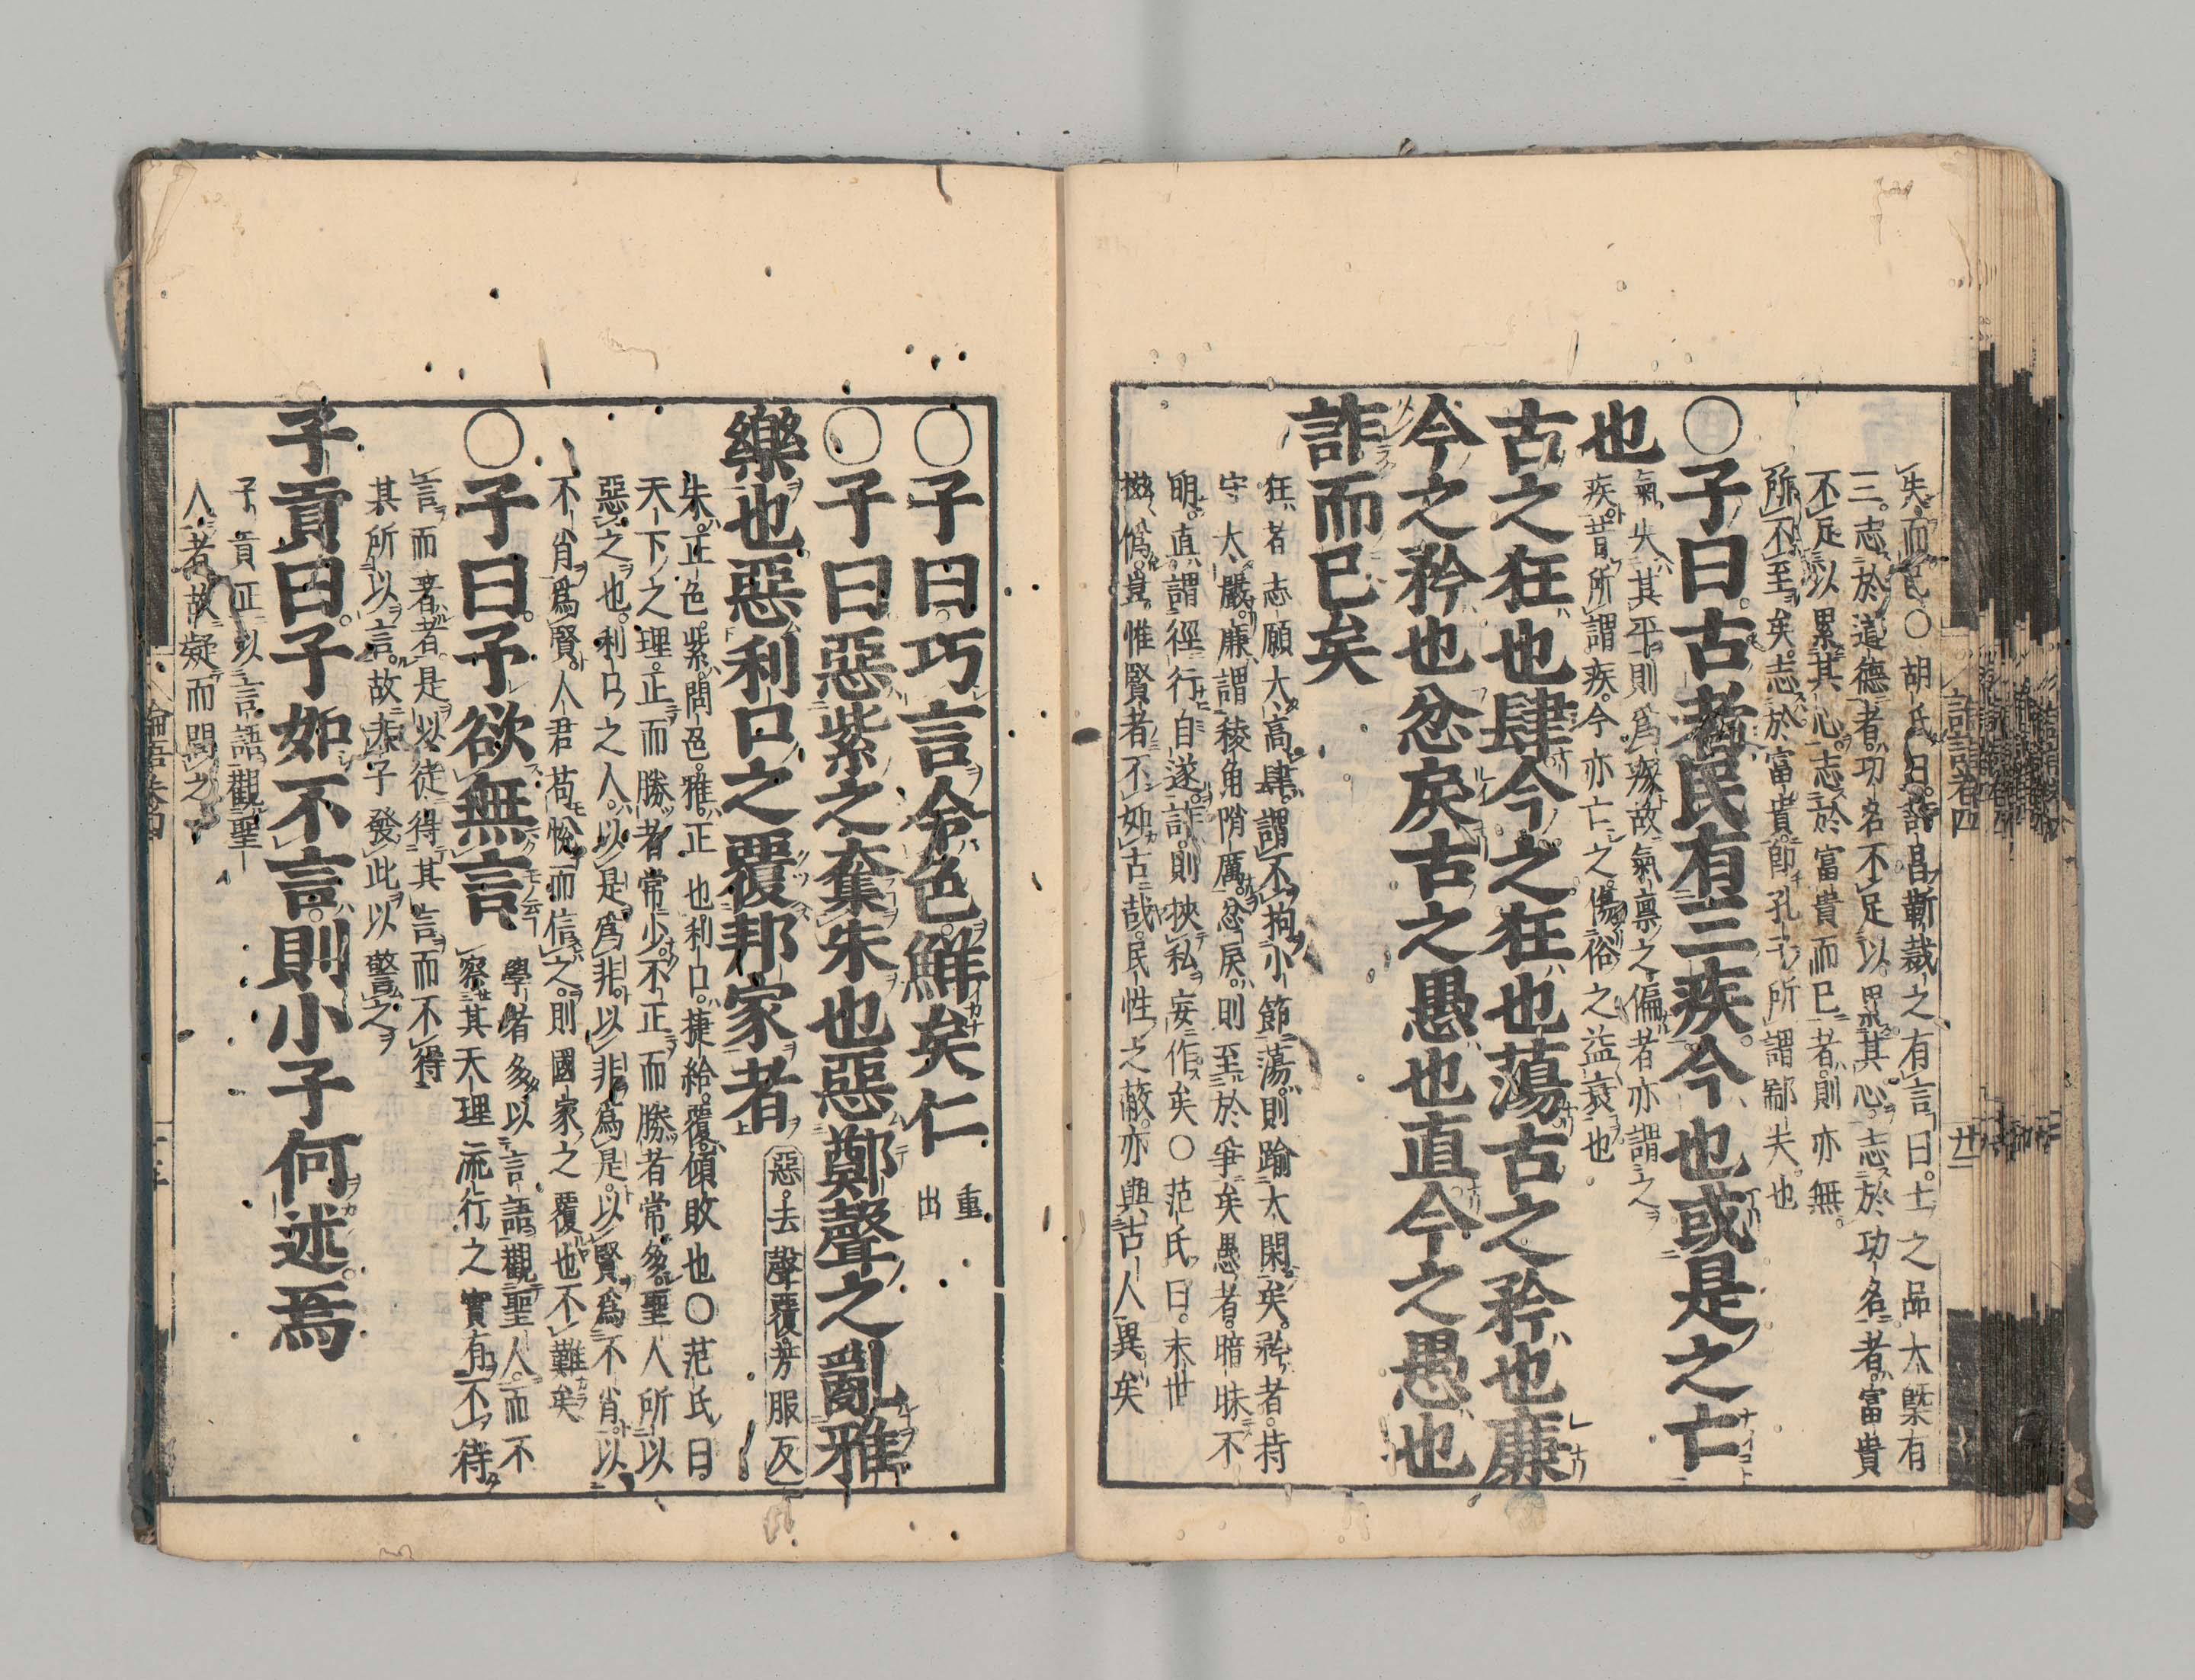 失而已○胡氏曰許昌靳裁之有言曰士之品大槩有
三志於道德者功名不足以累其心志於功名者富貴
不足以累其心志於富貴而已者則亦無
所不至矣志於富貴即孔子所謂鄙夫也
○子曰古者民有三疾今也或是之亡
也
氣失其平則爲疾故氣禀之偏者亦謂之
疾昔所謂疾今亦亡之傷俗之益衰也
古之狂也肆今之狂也蕩古之矜也廉
今之矜也忿戾古之愚也直今之愚也
詐而已矣
狂者志願大高肆謂不拘小節蕩則踰大閑矣矜者持
守大嚴廉謂稜角陗厲忿戾則至於爭矣愚者暗昧不
明直謂徑行自遂詐則挾私妄作矣○范氏曰末世
滋僞豈惟賢者不如古哉民性之蔽亦與古人異矣
○子曰巧言令色鮮矣仁
重出
○子曰惡紫之奪朱也惡鄭聲之亂雅
樂也惡利口之覆邦家者
惡去聲覆芳服反
朱正色紫間色雅正也利口捷給覆傾敗也○范氏曰
天下之理正而勝者常少不正而勝者常多聖人所以
惡之也利口之人以是爲非以非爲是以賢爲不肖以
不肖爲賢人君苟悅而信之則國家之覆也不難矣
○子曰予欲無言
學者多以言語觀聖人而不
察其天理流行之實有不待
言而著者是以徒得其言而不得
其所以言故夫子發此以警之
子貢曰子如不言則小子何述焉
子貢正以言語觀聖
人者故疑而問之
論語卷四
廿一